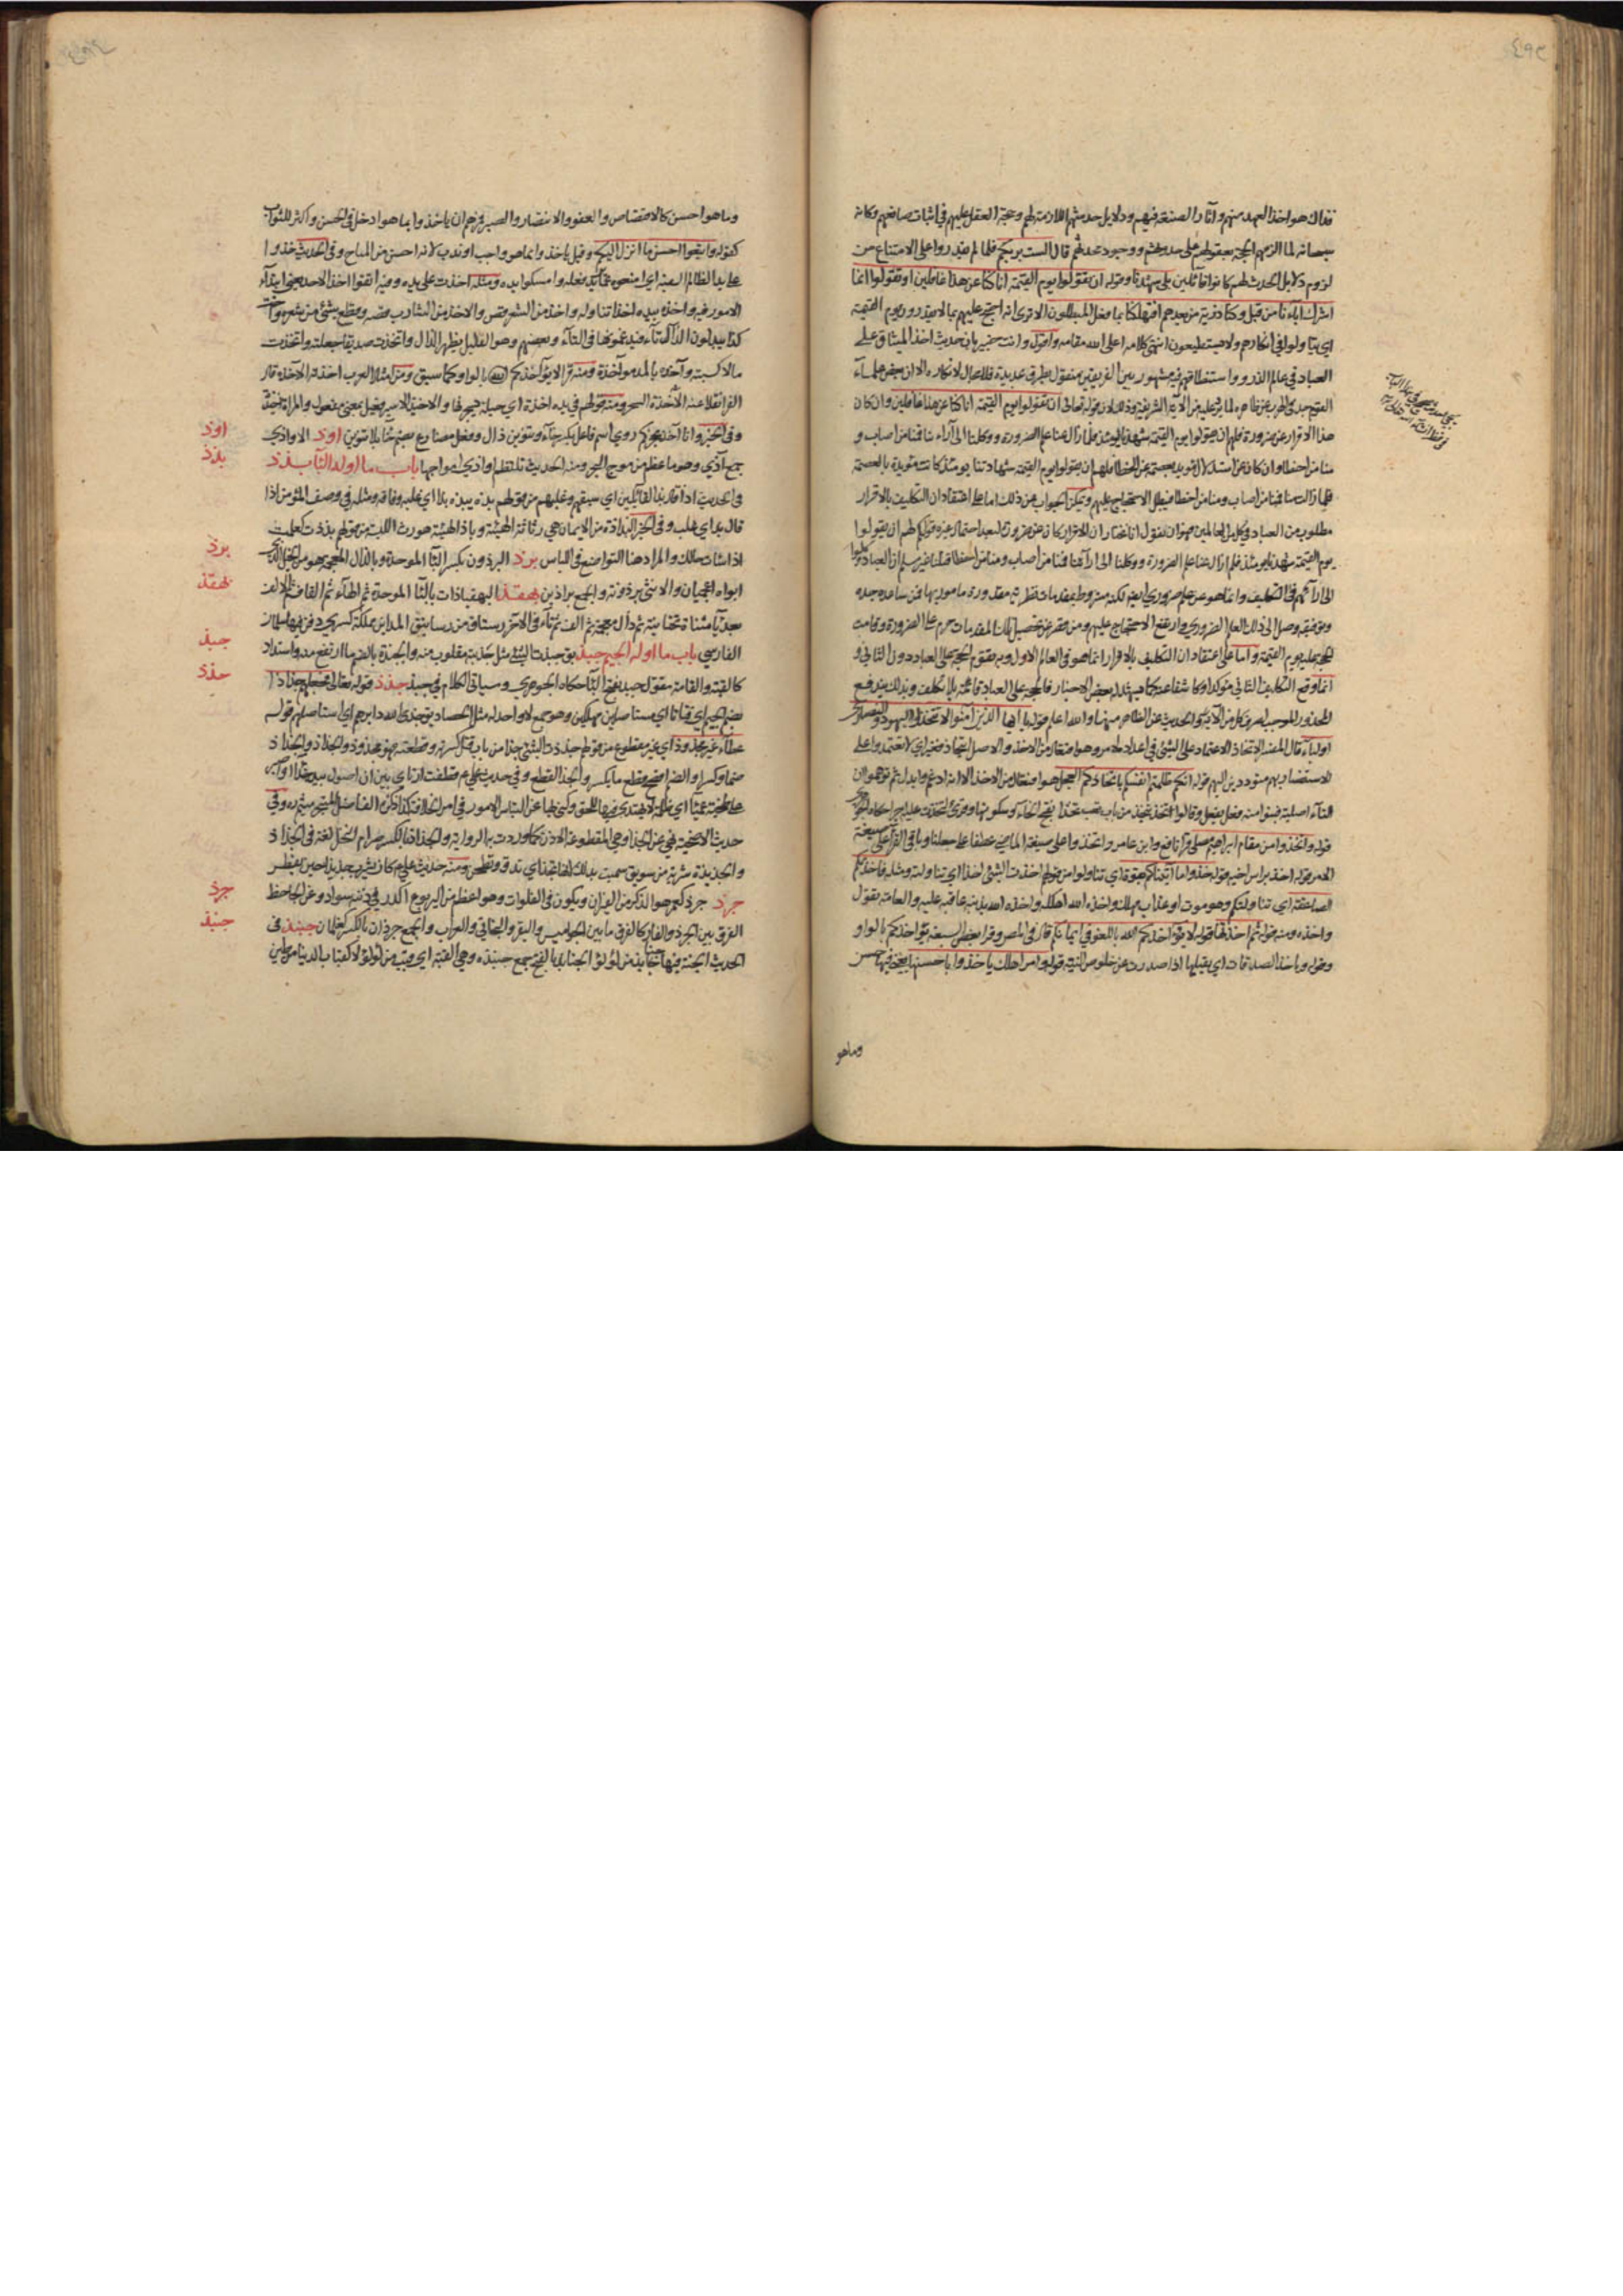 فذاك هو اخذ العهد منهم وآثار الصنعة فيهم ودلايل حدثهم اللازمة لهم وحجة العقل عليهم في اثبات صانعهم وكانه
سبحانه لما الزمهم الحجة بعقولهم على حدوثهم ووجود محدثهم قال الست بربكم فلما لم يقدروا على الامتناع من
لزوم دلايل الحدث لهم كانوا قائلين بلى شهدنا وقوله ان تقولوا يوم القيمة انا كنا عن هذا غافلين او تقولوا انما
اشرك اباؤنا من قبل وكنا ذرية من بعدهم افتهلكنا بما فعل المبطلون الا ترى انه احتج عليهم بما لا يقدرون يوم القيمة
ان يتاولوا في انكاره ولا يستطيعون انتهى كلامه اعلى الله مقامه واقول وانت خبير بان حديث اخذ الميثاق على
العباد في عالم الذر واستنطاقهم فيه مشهور بين الفريقين منقول بطرق عديدة فلا مجال لانكاره الا ان بعض علماء
القوم جد في الهرب عن ظاهره لما يرد عليه من الآية الشريفة وذلك لان قوله تعالى ان تقولوا يوم القيمة انا كنا عن هذا غافلين وان كان
هذا الاقرار عن ضرورة فلهم ان يقولوا يوم القيمة شهدنا يومئذ فلما زال عنا علم الضرورة ووكلنا الى آراءنا فمنا من اصاب و
منا من اخطا وان كان عن استدلال مؤيد بعصمة عن الخطا فلهم ان يقولوا يوم القيمة شهادتنا يومئذ كانت مؤيدة بالعصمة
فلما زالت منا فمنا من اصاب ومنا من اخطا فيبطل الاحتجاج عليهم ويمكن الجواب عن ذلك اما على اعتقاد ان التكليف بالاقرار
مطلوب من العباد في كل من العالمين فهو ان نقول انا نختار ان الاقرار كان عن ضرورة لبعد احتمال غيره قولكم لهم ان يقولوا
يوم القيمة شهدنا يومئذ فلما زال عنا علم الضرورة ووكلنا الى آرائنا فمنا من اصاب ومنا من اخطا قلنا غير مسلم اذ العباد لم يوكلوا
الى آرائهم في التكليف وانما هو عن علم ضروري ايضا لكنه مشروط بمقدمات نظرية مقدورة مامور بها فمن ساعده جده
وتوفيقه وصل الى ذلك العلم الضروري وارتفع الاحتجاج عليهم ومن قصر عن تحصيل تلك المقدمات حرم علم الضرورة وقامت
الحجة عليه يوم القيمة واما على اعتقاد ان التكليف بالاقرار انما هو في العالم الاول وبه تقوم الحجة على العباد دون الثاني و
انما وقع التكليف الثاني مؤكدا وكاشفا عنه كما يشهد له بعض الاخبار فالحجة على العباد قائمة بلا تكلف وبذلك يندفع
المحذور الموجب لصرف كل من الآية والحديث عن الظاهر منهما والله اعلم قوله يا ايها الذين آمنوا لا تتخذوا اليهود والنصارى
اولياء قال المفسر الاتخاذ الاعتماد على الشئ في اعداده لامر وهو افتعال من الاخذ والاصل ائتخاذ فمعنى اي لا تعتمدوا على
الاستنصار بهم متوددين اليهم قوله انكم ظلمتم انفسكم باتخاذكم العجل هو افتعال من الاخذ الا انه ادغم وابدل ثم توهموا ان
التاء اصلية فبنوا منه فعل يفعل وقالوا اتخذ يتخذ من باب تعب تخذا بفتح الخاء وسكونها وقرئ لتخذت عليه اجرا حكاه الجوهري
قوله واتخذوا من مقام ابرهيم مصلى قرا نافع وابن عامر واتخذوا على صيغة الماضي عطفا على جعلنا وباقي القراء على صيغة
الامر قوله اخذ براس اخيه قوله خذوا ما آتيناكم بقوة اي تناولوا من قولهم اخذت الشئ اخذا اي تناولته ومثله فاخذتكم
الصاعقة اي تناولتكم وهو موت او عذاب مهلك واخذه الله اهلكه واخذه الله بذنبه عاقبه عليه والعامة تقول
واخذه ومنه قوله ثم اخذتها قوله لا يؤاخذكم الله باللغو في ايمانكم قال في المصر وقرا بعض السبعة يؤاخذكم بالواو
وقوله وياخذ الصدقات اي يقبلها اذا صدرت عن خلوص النية قوله وامر اهلك ياخذوا باحسنها اي بما فيها من حسن
وماهو
وما هو احسن كالاقتصاص والعفو والانتصار والصبر فمرهم ان ياخذوا بما هو ادخل في الحسن واكثر للثواب
كقوله واتبعوا احسن ما انزل اليكم وقيل ياخذوا بما هو واجب او ندب لانه احسن من المباح وفي الحديث خذوا
على يد الظالم السفيه اي امنعوه عما يريد فعله وامسكوا يده ومثله اخذت على يده وفيه اتقوا اخذ الاحد يعني ابتداء
الامور فيه واخذه بيده اخذا تناوله واخذ من الشعر قص والاخذ من الشارب قصه وقطع شئ من شعره واتخذت
كذا يبدلون الذال تاء فيدغمونها في التاء وبعضهم وهو القليل يظهر الذال واتخذت صديقا جعلته واتخذت
مالا كسبته وآخذه بالمد مؤاخذة ومنه قرا لا يؤاخذكم الله بالواو كما سبق ومن امثال العرب اخذته الاخذة قال
الفرا نقلا عنه الاخذة السحر ومنه قولهم في يده اخذة اي حيلة يسحر بها والاخيذ الاسير فعيل بمعنى مفعول والمراة اخيذة
وفي الخبر وانا آخذ بحجزكم روي اسم فاعل بكسر خاء وتنوين ذال وفعل مضارع بضم خا بلا تنوين اوذ الاواذي
جمع آذي وهو ما عظم من موج البحر ومنه الحديث تلتطم اواذي امواجها باب ما اوله البا بذذ
في الحديث اذا قال بذ القائلين اي سبقهم وغلبهم من قولهم بذه يبذه بذا اي غلبه وفاقه ومثله في وصف المؤمن اذا
قال بذ اي غلب وفي الخبر البذاذة من الايمان هي رثاثة الهيئة وباذ الهيئة هو رث اللبسة من قولهم بذذت كعلمت
اذا ساءت حالك والمراد هنا التواضع في اللباس برذ البرذون بكسر البا الموحدة وبالذال المعجمة هو من الخيل الذي
ابواه اعجميان والانثى برذونة والجمع براذين بهقذ البهقباذات بالبا الموحدة ثم الهاء ثم القاف ثم الالف
بعد باء مثناة تحتانية ثم دال معجمة ثم الف ثم تاء في الآخر رستاق من رساتيق المداين مملكة كسرى دفن فيها سلمان
الفارسي باب ما اوله الجيم جبذ يق جبذت الشئ مثل جذبته مقلوب منه والجنبذة بالضم ما ارتفع منه واستدار
كالقبة والعامة تقول جنبذ بفتح البا حكاه الجوهري وسياتي الكلام في جنبذ جذذ قوله تعالى فجعلهم جذاذا
بضم الجيم اي فتاتا اي مستاصلين مهلكين وهو جمع لا واحد له مثل الحصاد يق جذ الله دابرهم اي استاصلهم قوله
عطاء غير مجذوذ اي غير مقطوع من قولهم جذذت الشئ جذا من باب قتل كسرته وقطعته فهو مجذوذ والجذاذ والجذاذ
ضما وكسرا والضم افصح وقطع ما يكسر والجذ القطع وفي حديث علي ع فطفقت ارتاي بين ان اصول بيد جذا او اصبر
على طخية عميا اي ظلمة لا يهتدى فيها للحق وكنى بها عن التباس الامور في امر الخلافة كذا ذكره الفاضل المتبحر ميثم ره وفي
حديث الاضحية نهى عن الجذاء وهي المقطوعة الاذن كما وردت به الرواية والجذاذ بالكسر صرام النخل لغة في الجداد
والجذيذة شربة من سويق سميت بذلك لانها تجذ اي تدق وتطحن ومنه حديث علي ع كان يشرب جذيذا حين يفطر
جرذ جرذ كصرد هو الذكر من الفيران ويكون في الفلوات وهو اعظم من اليربوع اكدر في ذنبه سواد وعن الجاحظ
الفرق بين الجرذ والفار كالفرق ما بين الجواميس والبقر والبخاتي والعراب والجمع جرذان بالكسر كغلمان جنبذ في
الحديث الجنة فيها جنابذ من لؤلؤ الجنابذ بالفتح جمع جنبذه وهي القبة اي قبب من لؤلؤ لا كقباب الدنيا من طين
اوذ
بذذ
برذ
بهقذ
جبذ
جذذ
جرذ
جنبذ